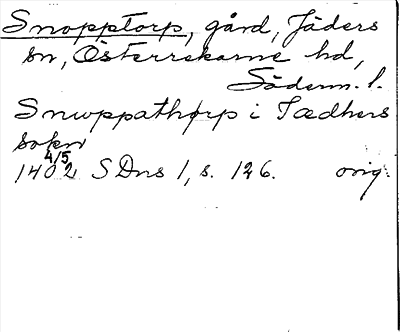 Snopptorp, gård, Jäders
sn, Österrekarne hd,
Söderm. l.
Snwppathorp i Jædhers
sokn
1402 4/5 SDns 1, s. 126. orig.